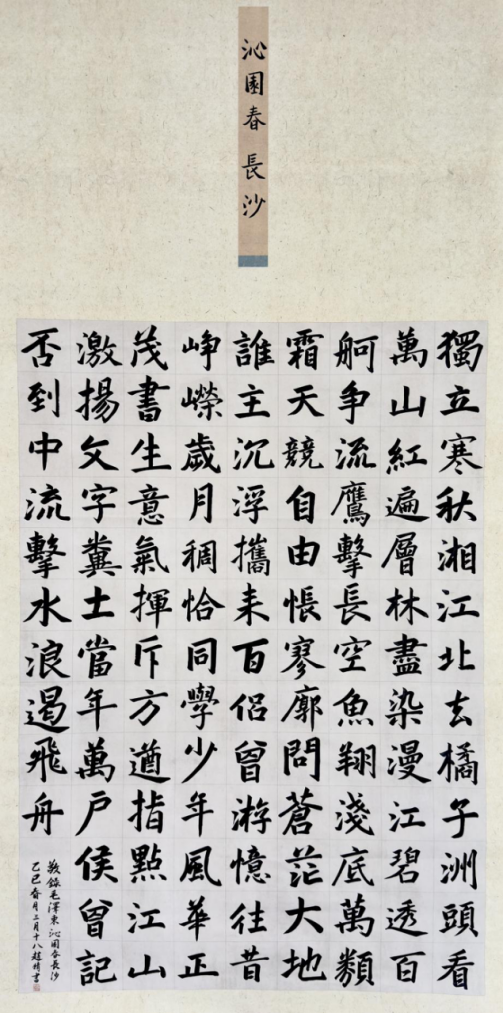 沁園春 長沙
獨立寒秋湘江北去橘子洲頭看
萬山紅遍層林盡染漫江碧透百
舸争流鷹擊長空魚翔淺底萬類
霜天競自由悵寥廓問蒼茫大地
誰主沉浮攜来百侣曾游憶往昔
峥嶸歲月稠恰同學少年風華正
茂書生意氣揮斥方遒指點江山
激揚文字糞土當年萬户侯曾記
否到中流擊水浪遏飛舟
敬錄毛澤東沁園春長沙
乙巳春月三月十八趙精書